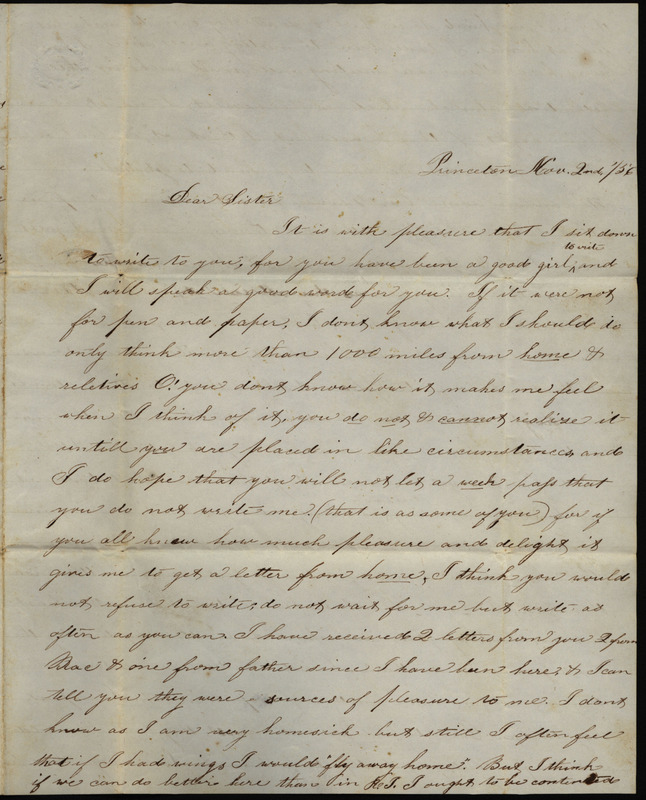 Princeton Nov. 2nd /56
Dear Sister
It is with pleasure that I sit down
to write
to write to you, for you have been a good girl, and
I will speak a good word for you. If it were not
for pen and paper, I dont know what I should do
only think more than 1000 miles from home &
reletives O! you dont know how it makes me feel
when I think of it, you do not & cannot realize it
untill you are placed in like circumstances, and
I do hope that you will not let a week pass that
you do not write me (that is as some of you) for if
you all knew how much pleasure and delight it
gives me to get a letter from home, I think you would
not refuse to write; do not wait for me but write as
often as you can I have received 2 letters from you 2 from
Mac & one from father since I have been here, & I can
tell you they were sources of pleasure to me. I dont
know as I am very homesick but still I often feel
that if I had wings I would "fly away home". But I think
if we can do better here than in R.I. I ought to be contented